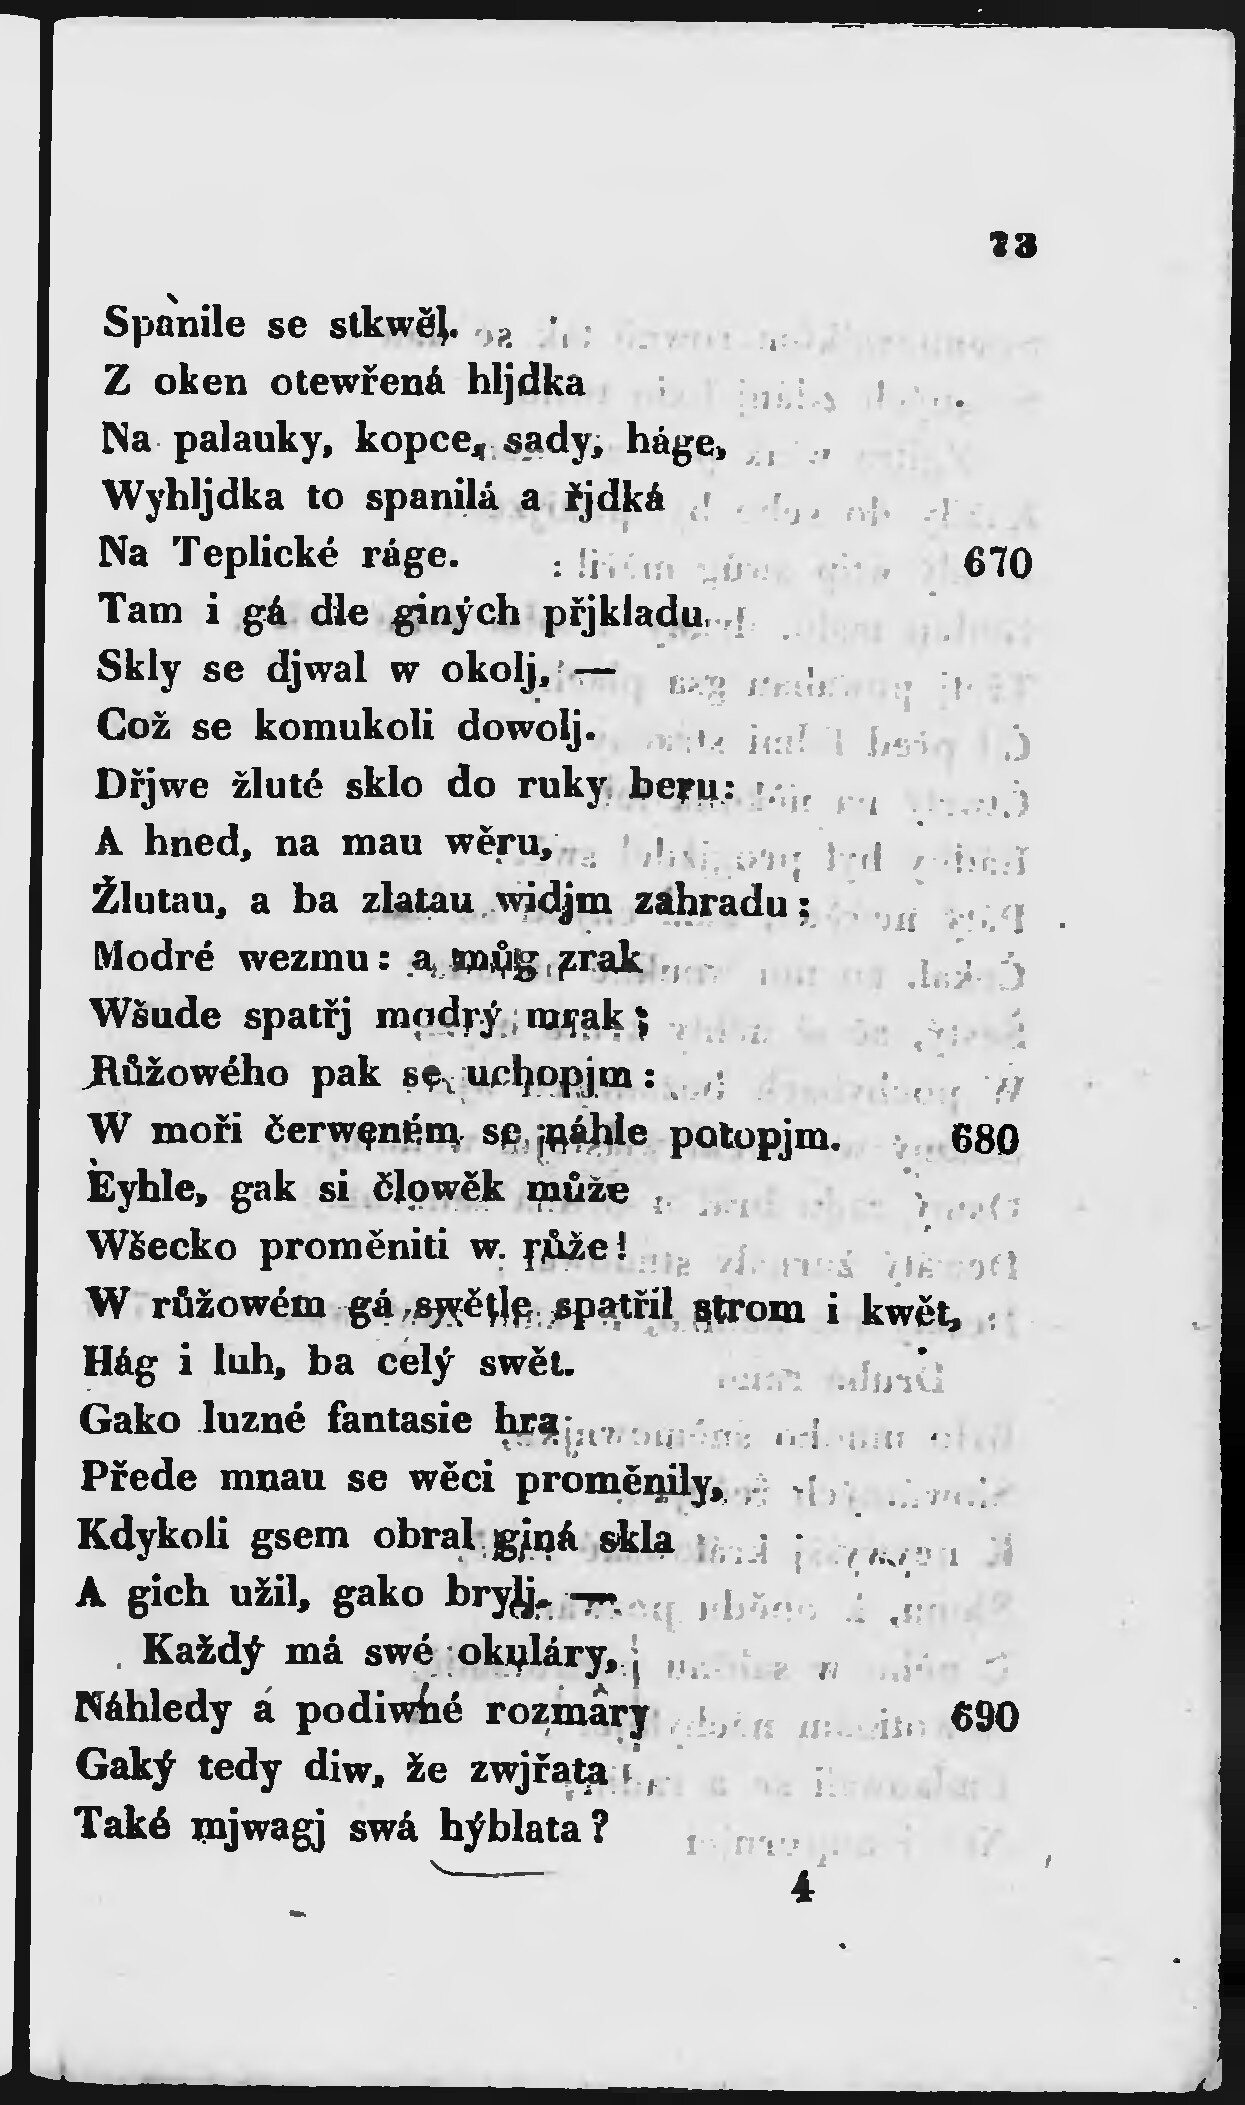 73
Spanile se stkwěl.
Z oken otewřená hljdka
Na palauky, kopce, sady, háge,
Wyhljdka to spanilá a řjdká
Na Teplické ráge. 670
Tam i gá dle giných přjkladu
Skly se djwal w okolj, —
Což se komukoli dowolj.
Dřjwe žluté sklo do ruky beru:
A hned, na mau wěru,
Žlutau, a ba zlatau widjm zahradu;
Modré wezmu: a můg zrak
Wšude spatřj modrý mrak;
Růžowého pak se uchopjm:
W moři červeném se náhle potopjm. 680
Eyhle, gak si člowěk může
Wšecko proměniti w růže!
W růžowém gá swětle spatřil strom i kwět,
Hág i luh, ba celý swět.
Gako luzné fantasie hra
Přede mnau se wěci proměnily,
Kdykoli gsem obral giná skla
A gich užil, gako brylj. —
Každý má swé okuláry,
Náhledy a podiwné rozmary
690
Gaký tedy diw, že zwjřata
Také mjwagj swá hýblata?
4